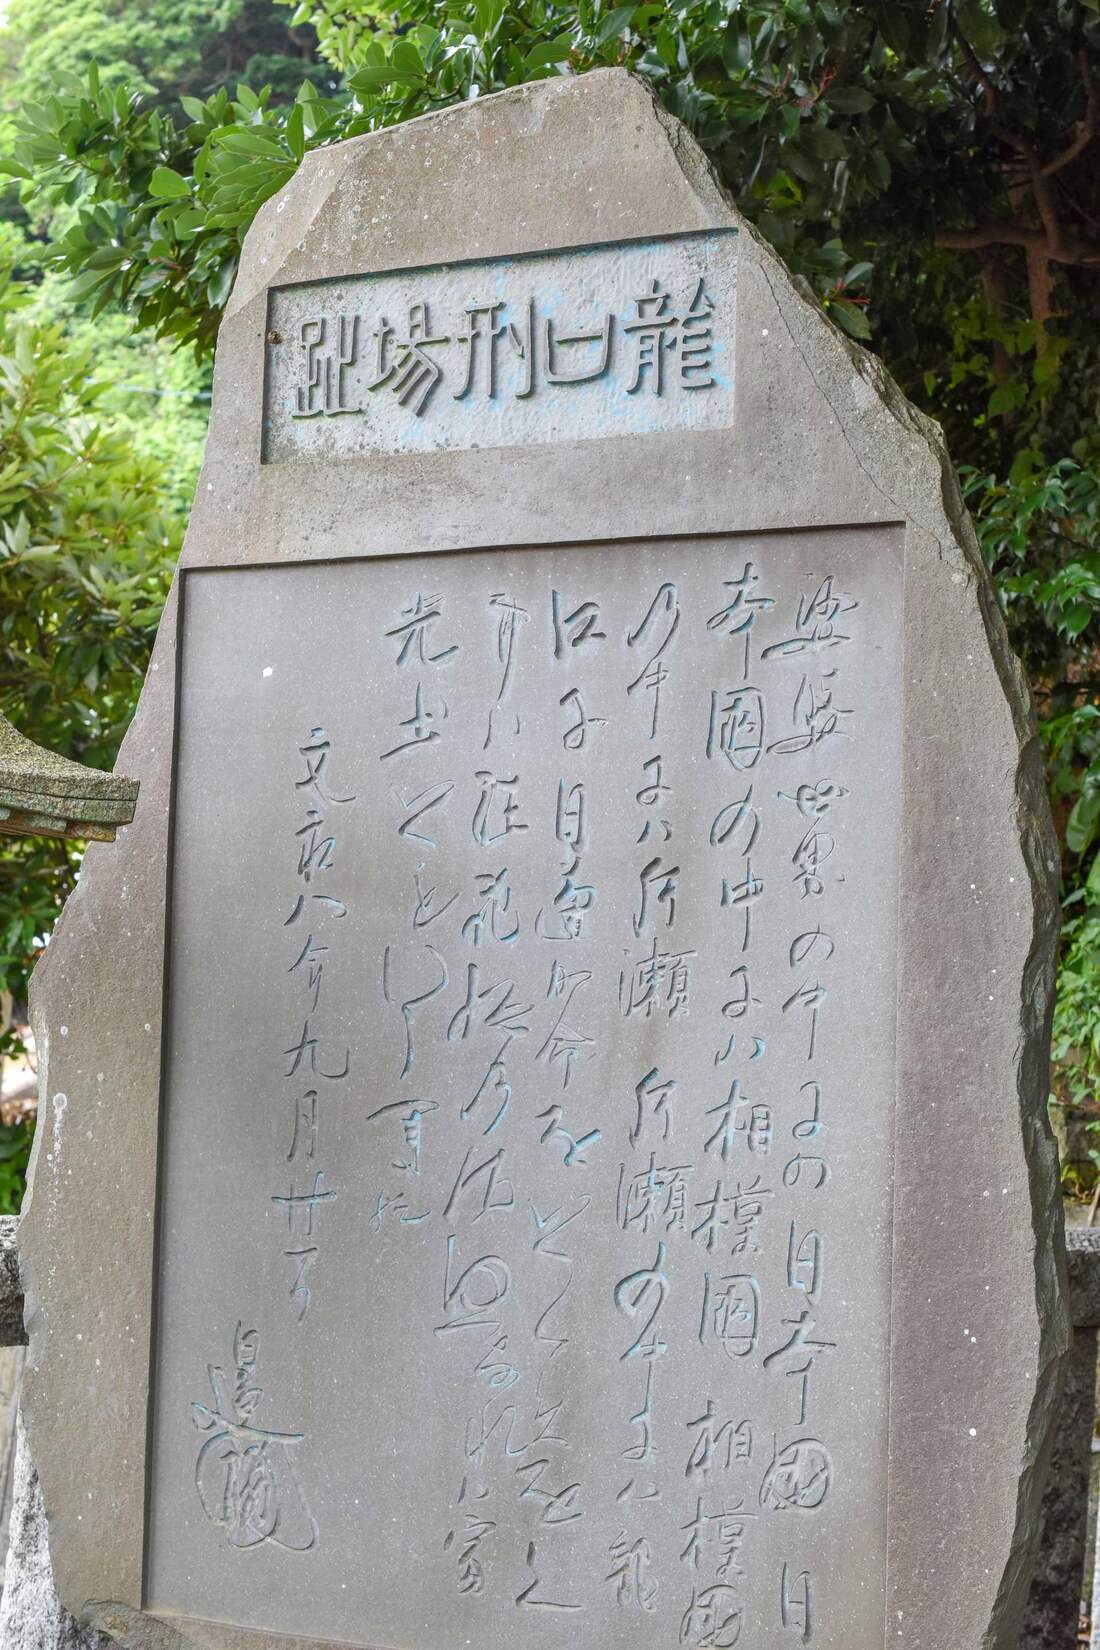 龍口刑場趾
娑婆世界の中には日本國 日
本國の中にハ相模國 相模國
の中にハ片瀬 片瀬の中にハ龍
口に日蓮か命をとゝめをく
事ハ法花経の御故なれハ寂
光土ともいう
文永八年九月廿一日
日蓮